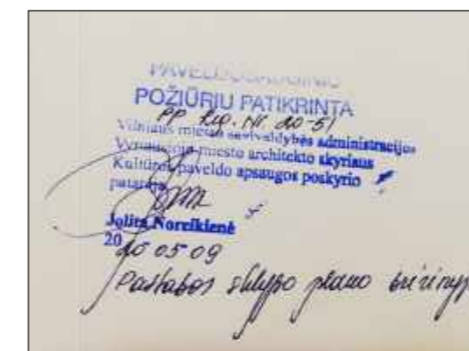 PAVELDOSAUGINIU
POŽIŪRIU PATIKRINTA
PP Reg. Nr. 20-51
Vilniaus miesto savivaldybės administracijos
Vyriausiojo miesto architekto skyriaus
Kultūros paveldo apsaugos poskyrio
patarėja
Jolita Noreikienė
20 20 05 09
Pastabos sklypo plano brėžinyje